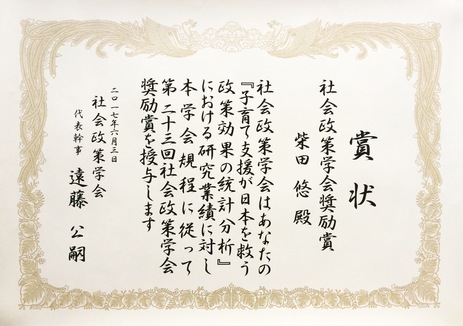 賞状
社会政策学会奨励賞
柴田 悠 殿
社会政策学会はあなたの
『子育て支援が日本を救う
政策効果の統計分析』
における研究業績に対し
本学会規程に従って
第二十三回社会政策学会
奨励賞を授与します
二〇一七年六月三日
社会政策学会
代表幹事 遠藤 公嗣